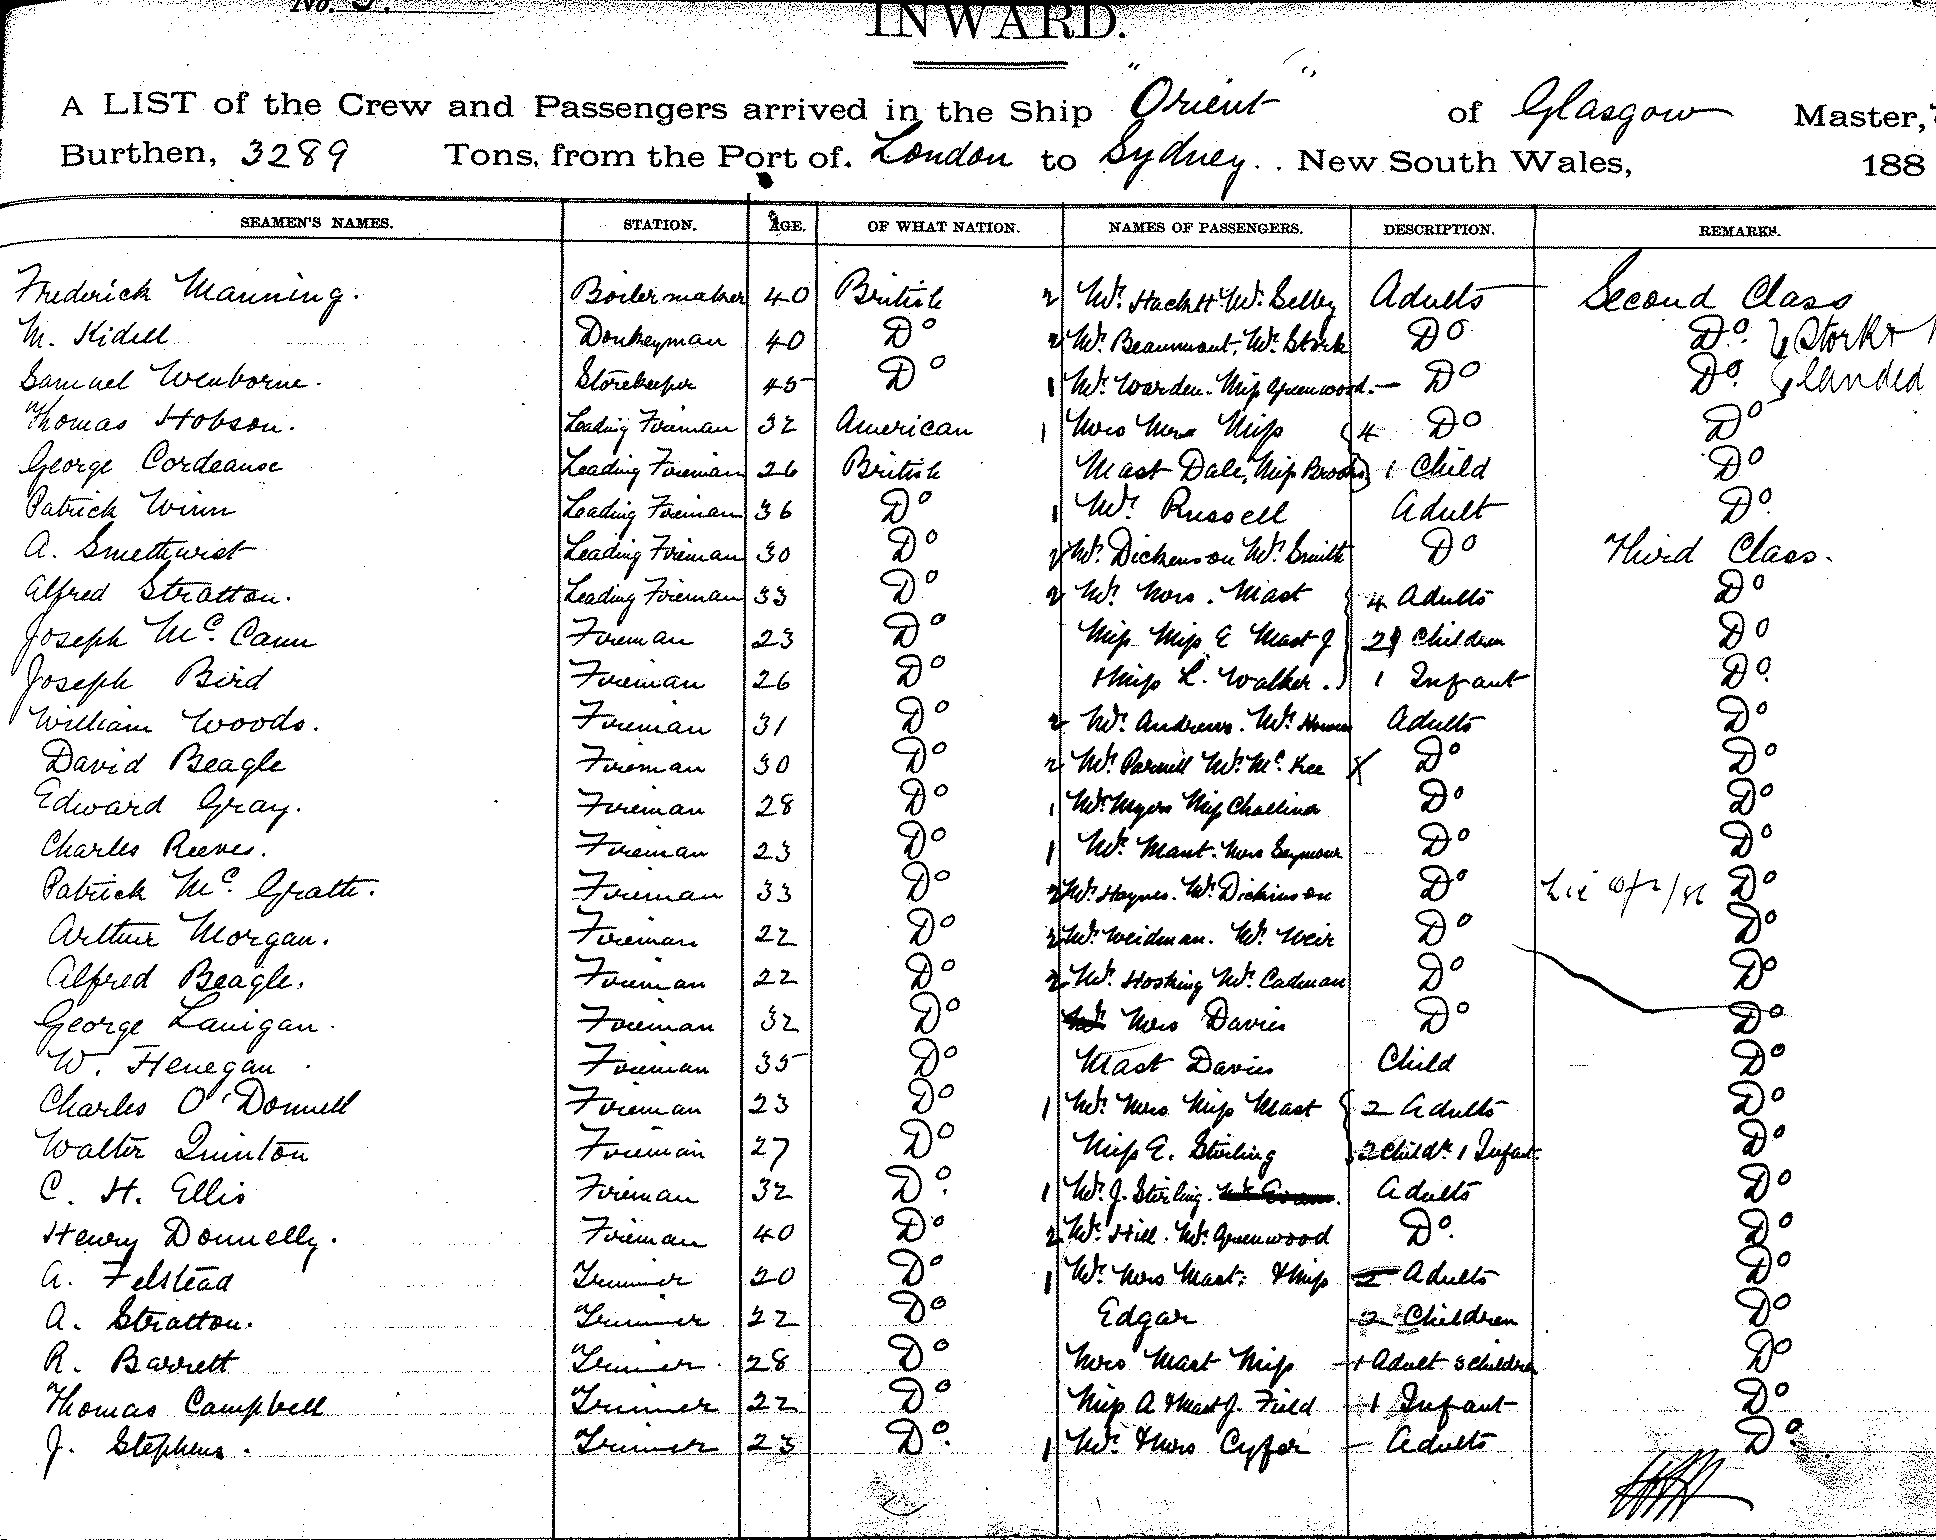 No. 3.
INWARD.
A LIST of the Crew and Passengers arrived in the Ship "Orient" of Glasgow Master,
Burthen, 3289 Tons, from the Port of London to Sydney.. New South Wales, 188
SEAMEN'S NAMES. STATION. AGE. OF WHAT NATION. NAMES OF PASSENGERS. DESCRIPTION. REMARKS.
Frederick Manning. Boilermaker 40 British 2 Mr. Hackett Mr. Selby Adults Second Class
M. Kidell Donkeyman 40 Do 2 Mr. Beaumont. Mr. Stork Do Do. Stork &
Samuel Wenborne. Storekeeper 45 Do 1 Mr. Warden. Miss Greenwood. — Do Do. landed
Thomas Hobson. Leading Fireman 32 American 1 Mrs Miss 4 Do Do
George Cordeause Leading Fireman 26 British Mast Dale, Miss Brooks 1 Child Do
Patrick Winn Leading Fireman 36 Do 1 Mr. Russell Adult Do.
A. Smethurst Leading Fireman 30 Do 2 Mr. Dickenson Mr. Smith Do Third Class.
Alfred Stratton. Leading Fireman 33 Do 2 Mr. Mrs. Mast 4 Adults Do
Joseph Mc. Cann Fireman 23 Do Miss Miss E Mast J 2 Children Do
Joseph Bird Fireman 26 Do & Miss L. Walker. 1 Infant Do.
William Woods. Fireman 31 Do 2 Mr. Andrews. Mr. Adults Do
David Beagle Fireman 30 Do 2 Mr. Parnill Mr. Mc. Kee Do Do
Edward Gray. Fireman 28 Do 1 Mr. Myers Miss Challinor Do Do
Charles Reeves. Fireman 23 Do 1 Mr. Mant. Mrs Seymour Do Do
Patrick Mc. Grath. Fireman 33 Do 2 Mr. Haynes. Mr. Dickinson Do Do
Arthur Morgan. Fireman 22 Do 2 Mr. Weidman. Mr. Weir Do Do
Alfred Beagle. Fireman 22 Do 2 Mr. Hosking Mr. Cadman Do Do
George Lanigan. Fireman 32 Do Mrs Davies Do Do
W. Henegan Fireman 35 Do Mast Davies Child Do
Charles O'Donnell Fireman 23 Do 1 Mr. Mrs Miss Mast 2 Adults Do
Walter Quinton Fireman 27 Do Miss E. Stirling 2 Childn. 1 Infant Do
C. H. Ellis Fireman 32 Do. 1 Mr. J. Stirling. Adults Do
Henry Donnelly. Fireman 40 Do 2 Mr. Hill. Mr. Greenwood Do. Do
A. Felstead Trimmer 20 Do 1 Mr. Mrs Mast. & Miss 2 Adults Do
A. Stratton. Trimmer 22 Do Edgar 2 Children Do
R. Barrett Trimmer 28 Do Mrs Mast Miss 1 Adult 3 Children Do
Thomas Campbell Trimmer 22 Do Miss A & Mast J. Field 1 Infant Do
J. Stephens. Trimmer 23 Do. 1 Mr. & Mrs Cyfer — Adults Do.